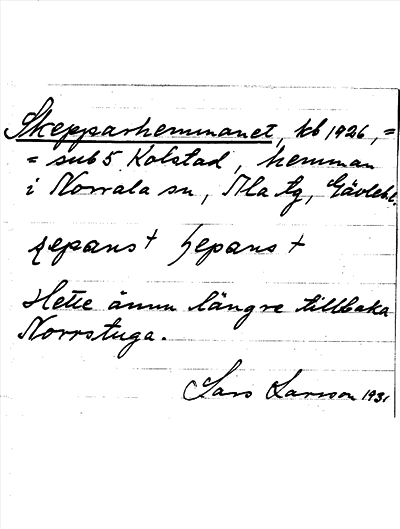 Skepparhemmanet, kb 1926, =
= sub 5 Kolstad, hemman
i Norrala sn, Ala tg, Gävleb.l.
ʒepans + hepans +
Hette ännu längre tillbaka
Norrstuga.
Lars Larsson 1931